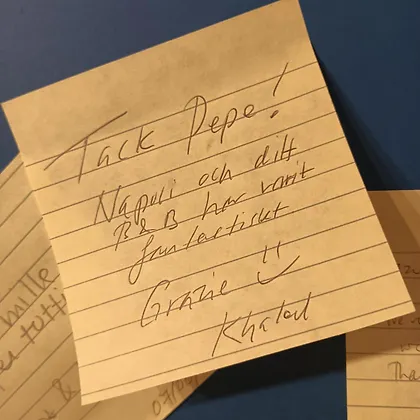 Tack Pepe!
Napoli och ditt
B&B har varit
fantastiskt
Grazie
Khaled
mille
tutto
Tha